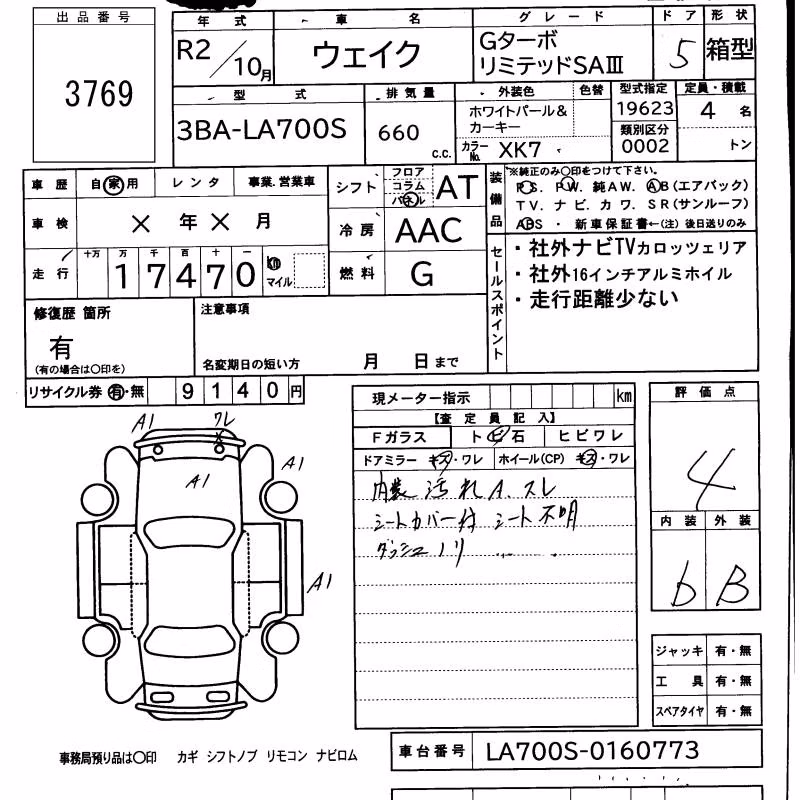 出品番号
3769
年式 車名 グレード ドア 形状
R2/10月 ウェイク Gターボ リミテッドSAⅢ 5 箱型
型式 排気量 外装色 色替 型式指定 定員・積載
3BA-LA700S 660 c.c. ホワイトパール&カーキー 19623 4 名
カラーNo. XK7 類別区分 0002 トン
車歴 自家用 レンタ 事業.営業車
車検 × 年 × 月
走行 十万 万 千 百 十 一
1 7 4 7 0 km マイル
シフト フロア コラム パネル AT
冷房 AAC
燃料 G
装備品 ※純正のみ〇印をつけて下さい。
P.S. P.W. 純AW. AB(エアバック)
TV. ナビ. カワ. SR(サンルーフ)
ABS ・ 新車保証書←(注) 後日送りのみ
セールスポイント
・社外ナビTVカロッツェリア
・社外16インチアルミホイル
・走行距離少ない
修復歴 箇所
有
(有の場合は〇印を)
注意事項
名変期日の短い方 月 日まで
リサイクル券 有・無 9140円
現メーター指示 km
【査定員記入】
Fガラス ト ビ 石 ヒビワレ
ドアミラー キズ・ワレ ホイール(CP) キズ・ワレ
内装 汚れ A. スレ
シートカバー付 シート不明
ダッシュノリ
評価点
4
内装 外装
b B
A1 ワレ
A1
A1
A1
ジャッキ 有・無
工具 有・無
スペアタイヤ 有・無
事務局預り品は〇印 カギ シフトノブ リモコン ナビロム
車台番号 LA700S-0160773